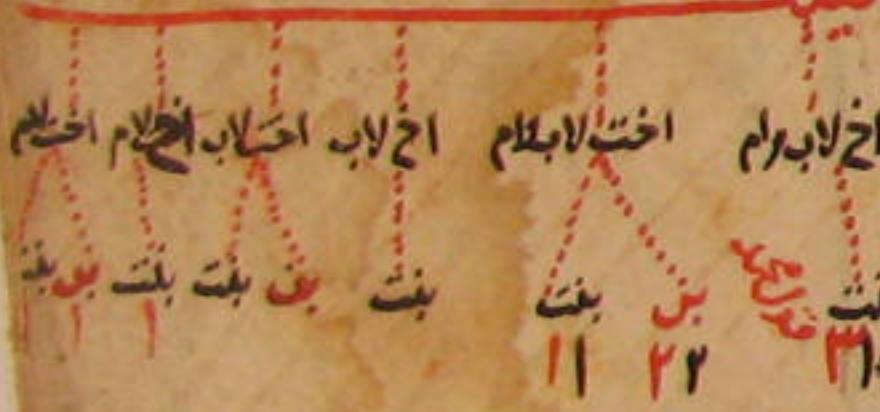 اخ لاب وام اخت لاب وام اخ لاب اخت لاب اخ لام اخت لام
بنت بن بنت بنت بن بنت بنت بن بنت
٣ ٢ ٢ ١ ١ ١ ١